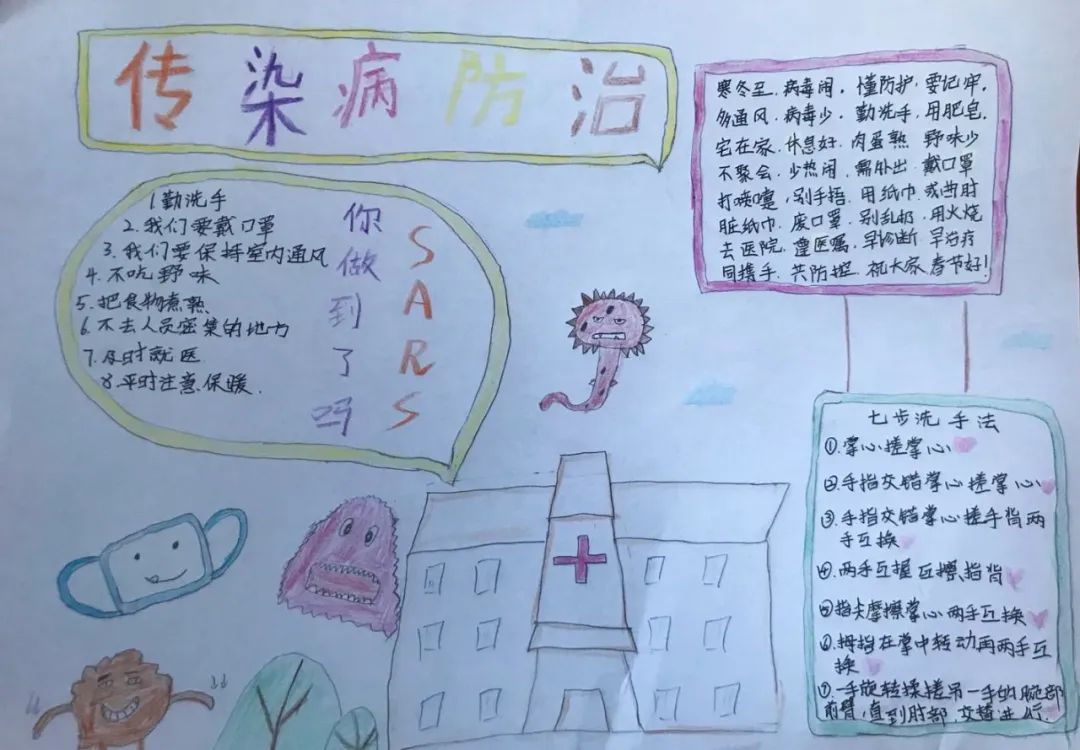 传染病防治
1勤洗手
2.我们要戴口罩
3.我们要保持室内通风
4.不吃野味
5.把食物煮熟
6.不去人员密集的地方
7.及时就医
8.平时注意保暖.
你做到了吗
SARS
寒冬至.病毒闹.懂防护.要记牢.
多通风.病毒少.勤洗手.用肥皂.
宅在家.休息好.肉蛋熟.野味少
不聚会.少热闹.需外出.戴口罩
打喷嚏,别手捂.用纸巾.或曲肘
脏纸巾.废口罩.别乱扔.用火烧
去医院.遵医嘱.早诊断.早治疗
同携手.共防控.祝大家.春节好!
七步洗手法
①.掌心搓掌心
②.手指交错掌心搓掌心
③.手指交错掌心搓手背两
手互换
④.两手互握互擦指背
⑤指尖摩擦掌心两手互换
⑥.拇指在掌中转动两手互
换
⑦.一手旋转揉搓另一手的腕部
前臂,直到肘部.交替进行.